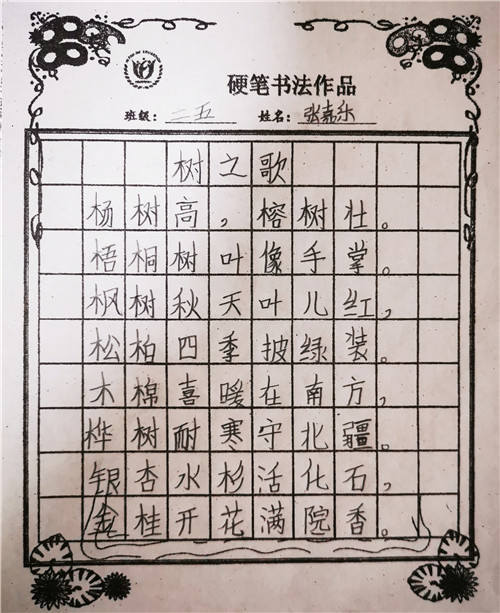 硬笔书法作品
班级：二五 姓名：张嘉乐
树之歌
杨树高，榕树壮。
梧桐树叶像手掌。
枫树秋天叶儿红，
松柏四季披绿装。
木棉喜暖在南方，
桦树耐寒守北疆。
银杏水杉活化石，
金桂开花满院香。